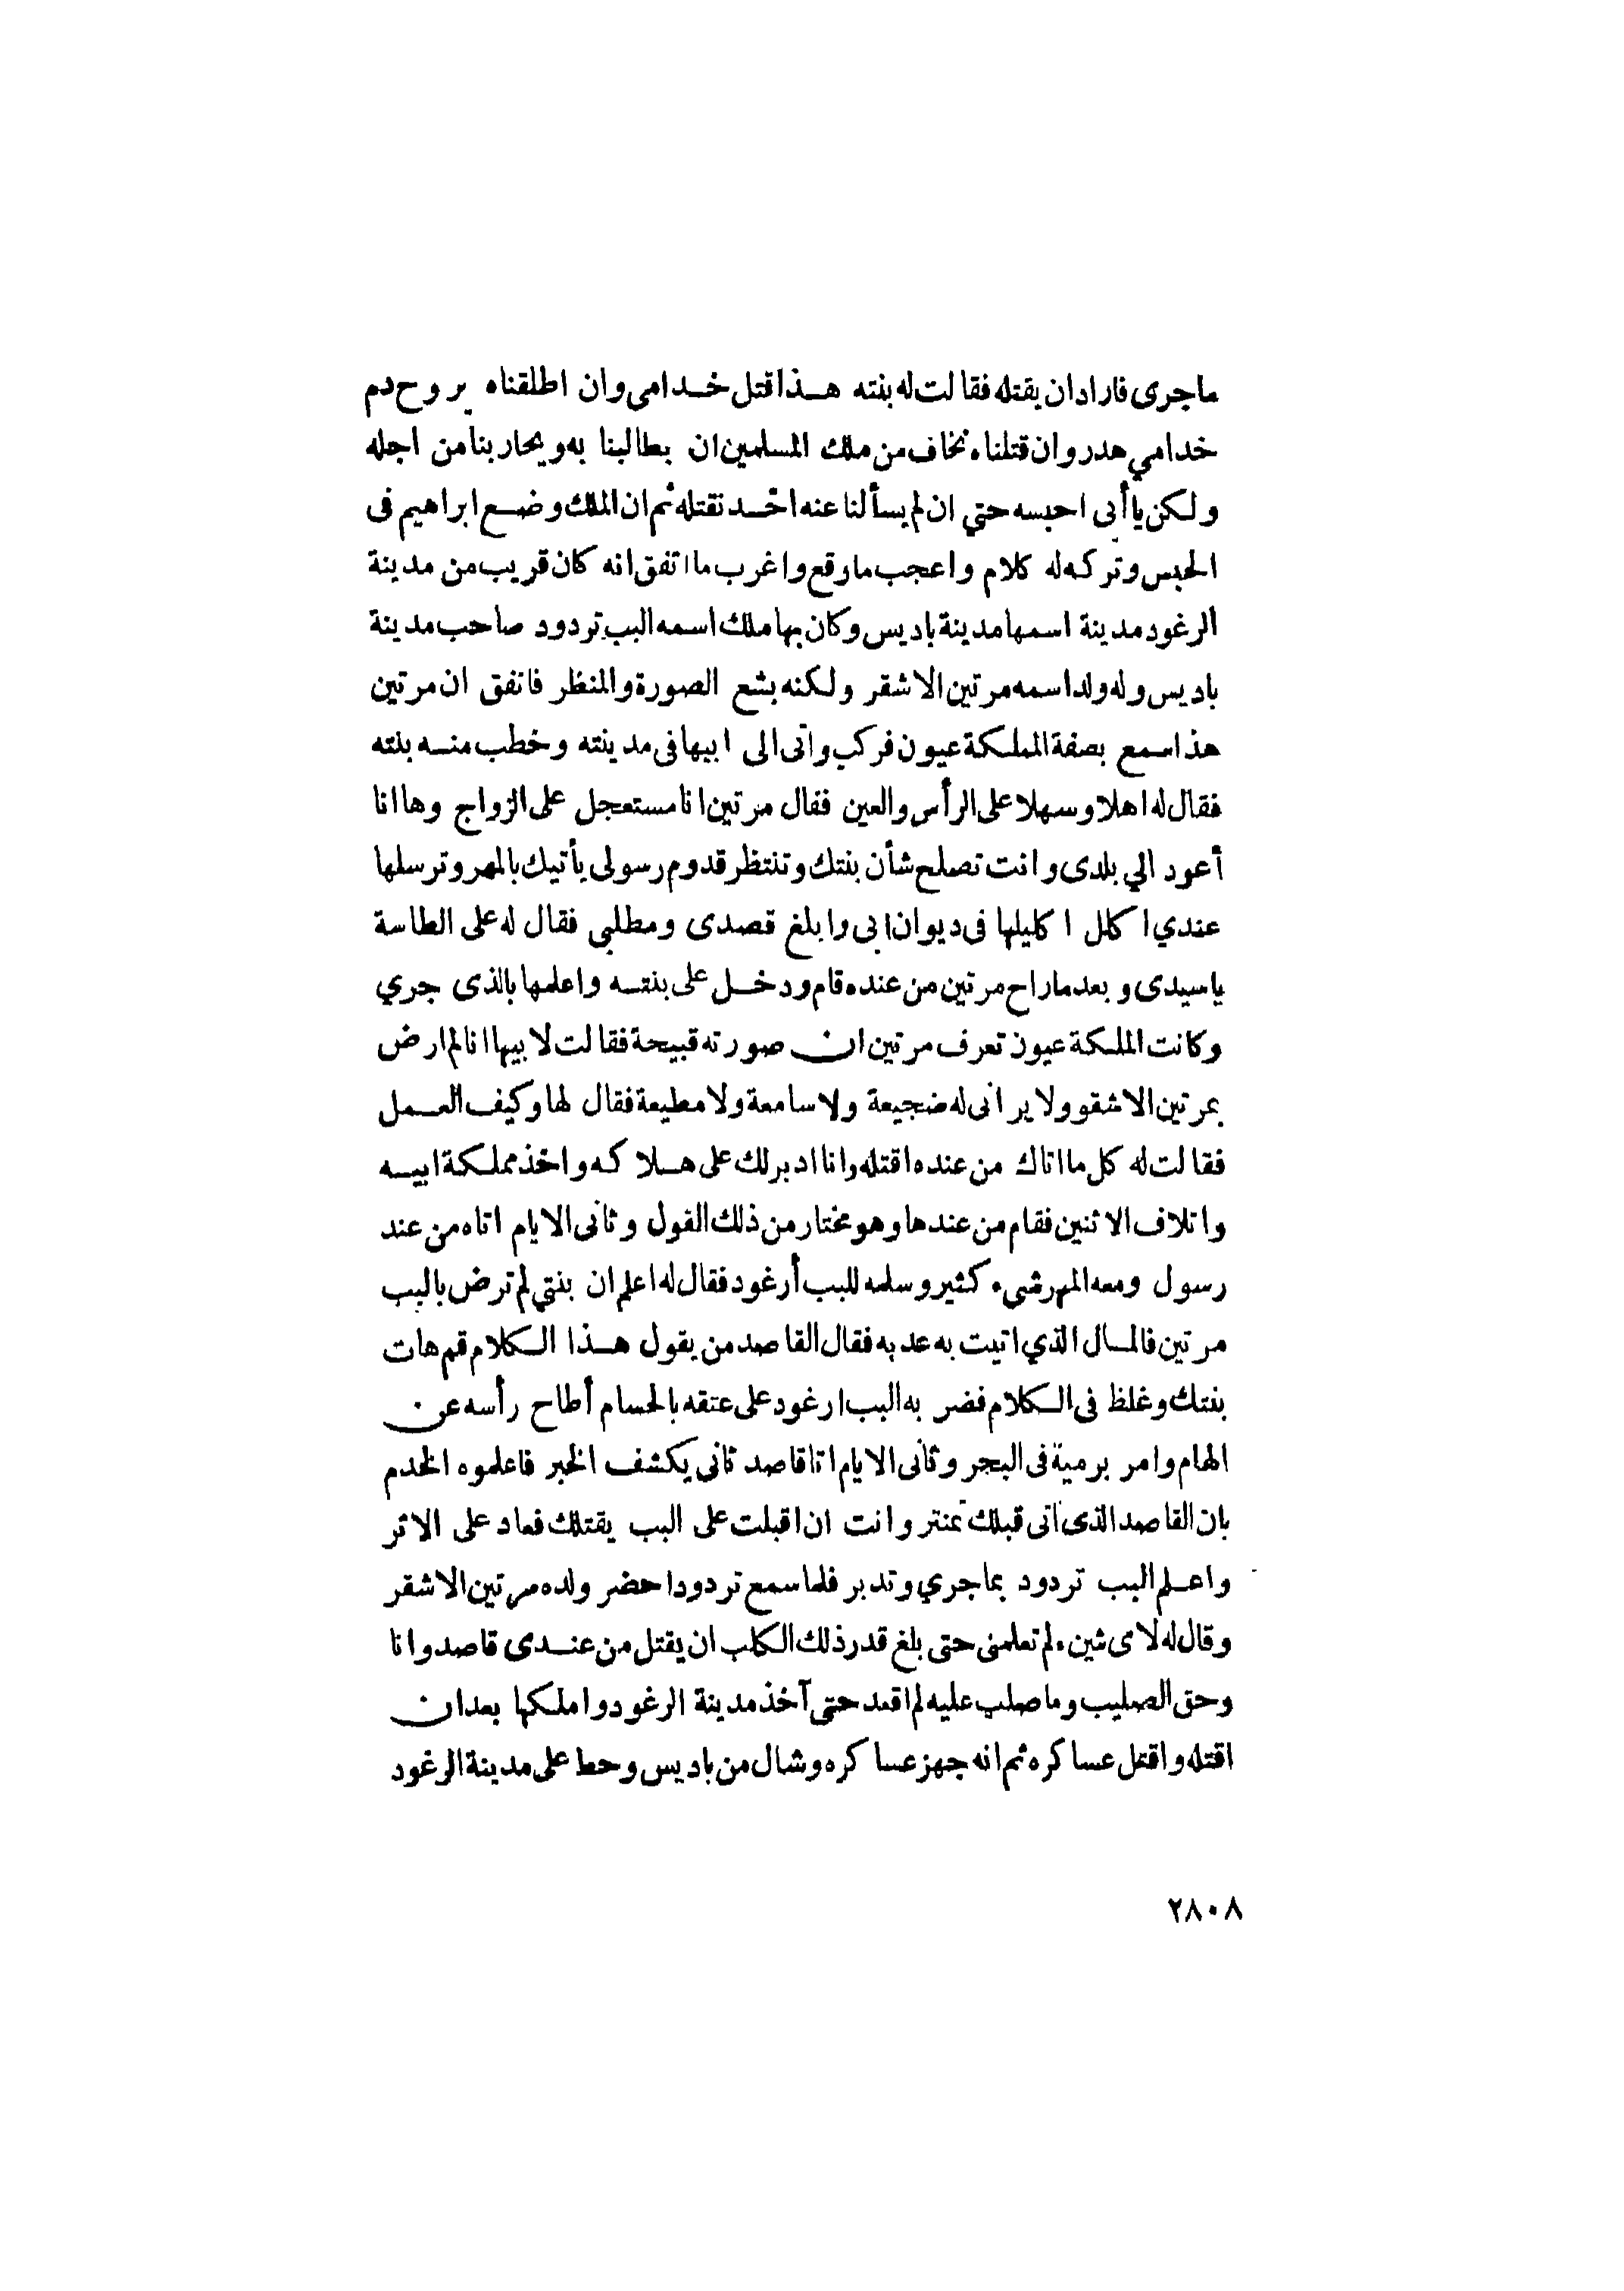 ماجرى فاراد ان يقتله فقالت له بنته هـذا قتل خـدامى وان اطلقناه يروح دم
خدامي هدر وان قتلناه نخاف من ملك المسلمين ان يطالبنا به ويحاربنا من اجله
ولكن يا أبى احبسه حتي ان لم يسألنا عنه احد نقتله ثم ان الملك وضع ابراهيم فى
الحبس وتركه له كلام واعجب ما وقع واغرب ما اتفق انه كان قريب من مدينة
الرغود مدينة اسمها مدينة باديس وكان بها ملك اسمه البب تردود صاحب مدينة
باديس وله ولد اسمه مرتين الاشقر ولكنه بشع الصورة والمنظر فاتفق ان مرتين
هذا سمع بصفة الملكة عيون فركب وأتى الى ابيها فى مدينته وخطب منه بنته
فقال له اهلا وسهلا على الرأس والعين فقال مرتين انا مستعجل على الزواج وها انا
أعود الي بلدى وانت تصلح شأن بنتك وتنتظر قدوم رسولى يأتيك بالمهر وترسلها
عندي اكلل اكليلها فى ديوان ابى وابلغ قصدى ومطلبى فقال له على الطاسة
ياسيدى وبعد ماراح مرتين من عنده قام ودخل على بنته واعلمها بالذى جري
وكانت الملكة عيون تعرف مرتين ان صورته قبيحة فقالت لابيها انا لم ارض
بمرتين الاشقو ولا يرانى له ضجيعة ولا سامعة ولا مطيعة فقال لها وكيف العمل
فقالت له كل ما اتاك من عنده اقتله وانا ادبر لك على هلاكه واخذ مملكة ابيه
واتلاف الاثنين فقام من عندها وهو مختار من ذلك القول وثانى الايام اتاه من عند
رسول ومعه المهر شىء كثير وسلمه للبب أرغود فقال له اعلم ان بنتي لم ترض بالبب
مرتين فالمال الذي اتيت به عد به فقال القاصد من يقول هـذا الكلام قم هات
بنتك وغلظ فى الكلام فضربه البب ارغود على عتقه بالحسام أطاح رأسه عن
الهام وامر برمية فى البحر وثانى الايام اتا قاصد ثانى يكشف الخبر فاعلموه الخدم
بان القاصد الذى أتى قبلك تمنتر وانت ان اقبلت على البب يقتلك فعاد على الاثر
واعلم البب تردود بماجري وتدبر فلما سمع تردود احضر ولده مرتين الاشقر
وقال له لاى شىء لم تعلمنى حتى بلغ قدر ذلك الكلب ان يقتل من عندى قاصد وانا
وحق الصليب وما صلب عليه لم اقعد حتى آخذ مدينة الرغود واملكها بعد ان
اقتله واقتل عساكره ثم انه جهز عساكره وشال من باديس وحط على مدينة الرغود
٢٨٠٨